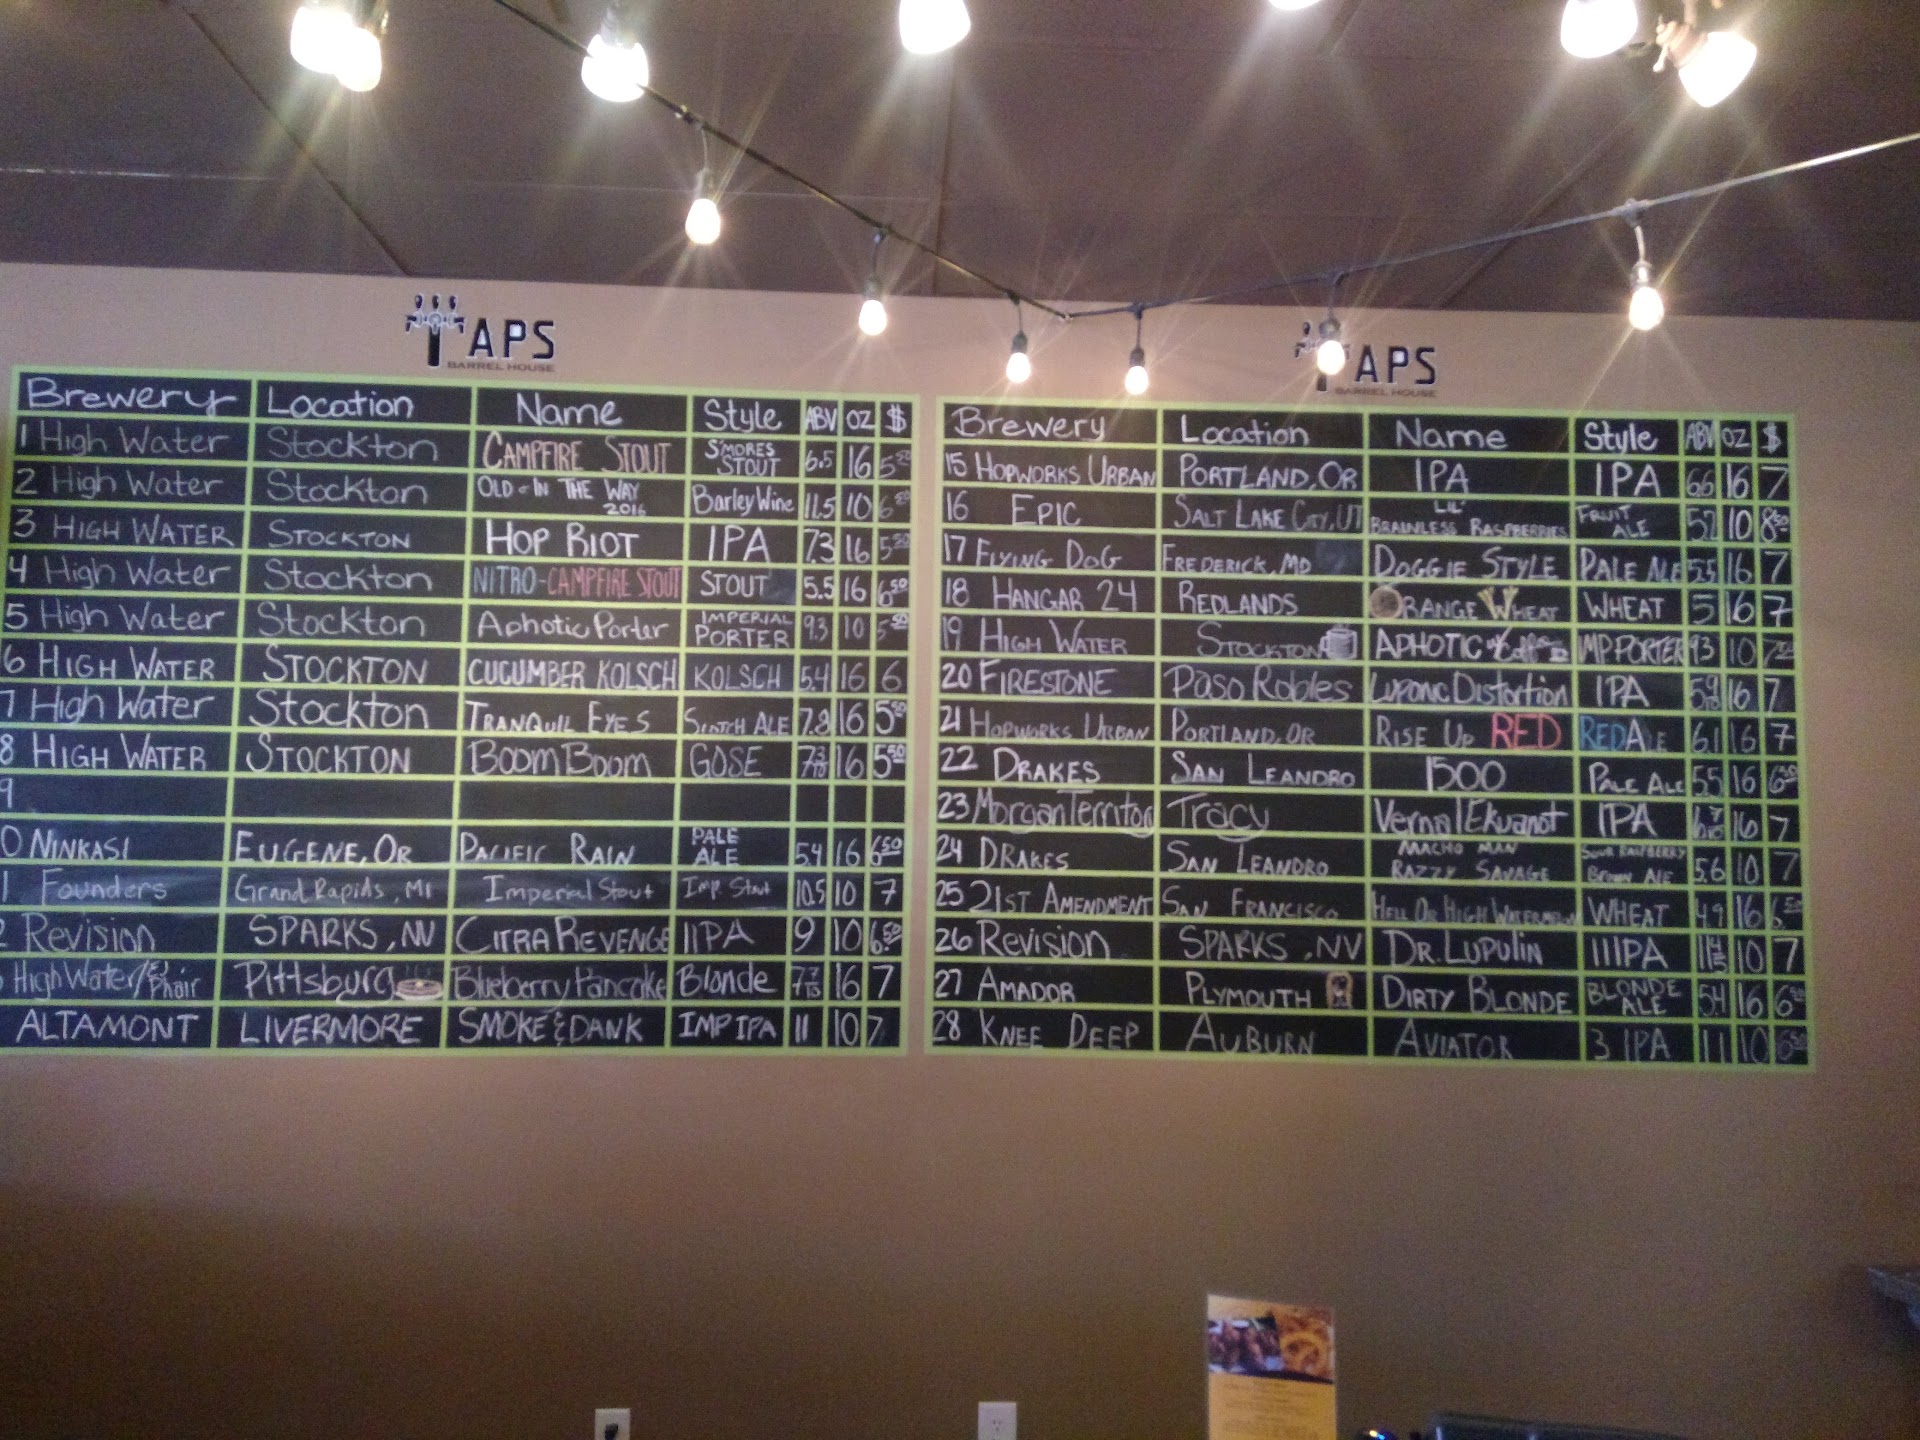 TAPS
BARREL HOUSE
TAPS
BARREL HOUSE
Brewery Location Name Style ABV OZ $
1 High Water Stockton CAMPFIRE STOUT S'MORES STOUT 6.5 16 5 50
2 High Water Stockton OLD-IN THE WAY 2016 BarleyWine 11.5 10 6 50
3 HIGH WATER STOCKTON HOP RIOT IPA 7.3 16 5 50
4 High Water Stockton NITRO-CAMPFIRE STOUT STOUT 5.5 16 6 50
5 High Water Stockton Aphotic Porter IMPERIAL PORTER 9.3 10 5 50
6 HIGH WATER STOCKTON CUCUMBER KOLSCH KOLSCH 5.4 16 6
7 High Water Stockton TRANQUIL EYES SCOTCH ALE 7.8 16 5 50
8 HIGH WATER STOCKTON BOOM BOOM GOSE 16 5 50
9
0 NINKASI EUGENE, OR PACIFIC RAIN PALE ALE 5.4 16 6 50
1 Founders Grand Rapids, MI Imperial Stout Imp. Stout 10.5 10 7
2 Revision SPARKS, NV CITRA REVENGE IIPA 9 10 6 50
High Water/ Pittsburg Blueberry Pancake Blonde 16 7
ALTAMONT LIVERMORE SMOKE & DANK IMP IPA 11 10 7
Brewery Location Name Style ABV OZ $
15 HOPWORKS URBAN PORTLAND, OR IPA IPA 6.6 16 7
16 EPIC SALT LAKE CITY, UT LIL' BRAINLESS RASPBERRIES FRUIT ALE 5.2 10 8 50
17 FLYING DOG FREDERICK, MD DOGGIE STYLE PALE ALE 5.5 16 7
18 HANGAR 24 REDLANDS ORANGE WHEAT WHEAT 5 16 7
19 HIGH WATER STOCKTON APHOTIC w/ Coffee IMP PORTER 9.3 10 7 50
20 FIRESTONE Paso Robles Luponic Distortion IPA 16 7
21 HOPWORKS URBAN PORTLAND, OR RISE UP RED RED ALE 6.1 16 7
22 DRAKES SAN LEANDRO 1500 PALE ALE 5.5 16 6 50
23 Morgan Territory Tracy Vernal Ekuanot IPA 16 7
24 DRAKES SAN LEANDRO MACHO MAN RAZZY SAVAGE SOUR RASPBERRY BROWN ALE 5.6 10 7
25 21ST AMENDMENT SAN FRANCISCO HELL OR HIGH WATERMELON WHEAT 4.9 16 6 50
26 Revision SPARKS, NV DR. LUPULIN IIIPA 10 7
27 AMADOR PLYMOUTH DIRTY BLONDE BLONDE ALE 5.4 16 6 50
28 KNEE DEEP AUBURN AVIATOR 3 IPA 11 10 6 50